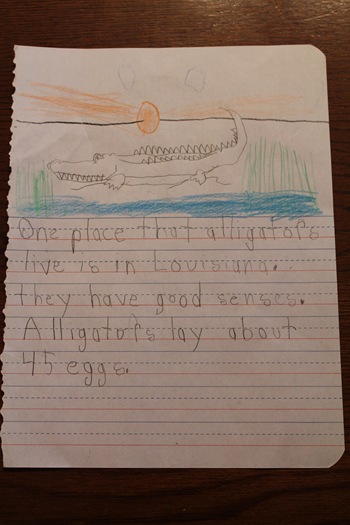 One place that alligators
live is in Louisiana.
they have good senses.
Alligators lay about
45 eggs.